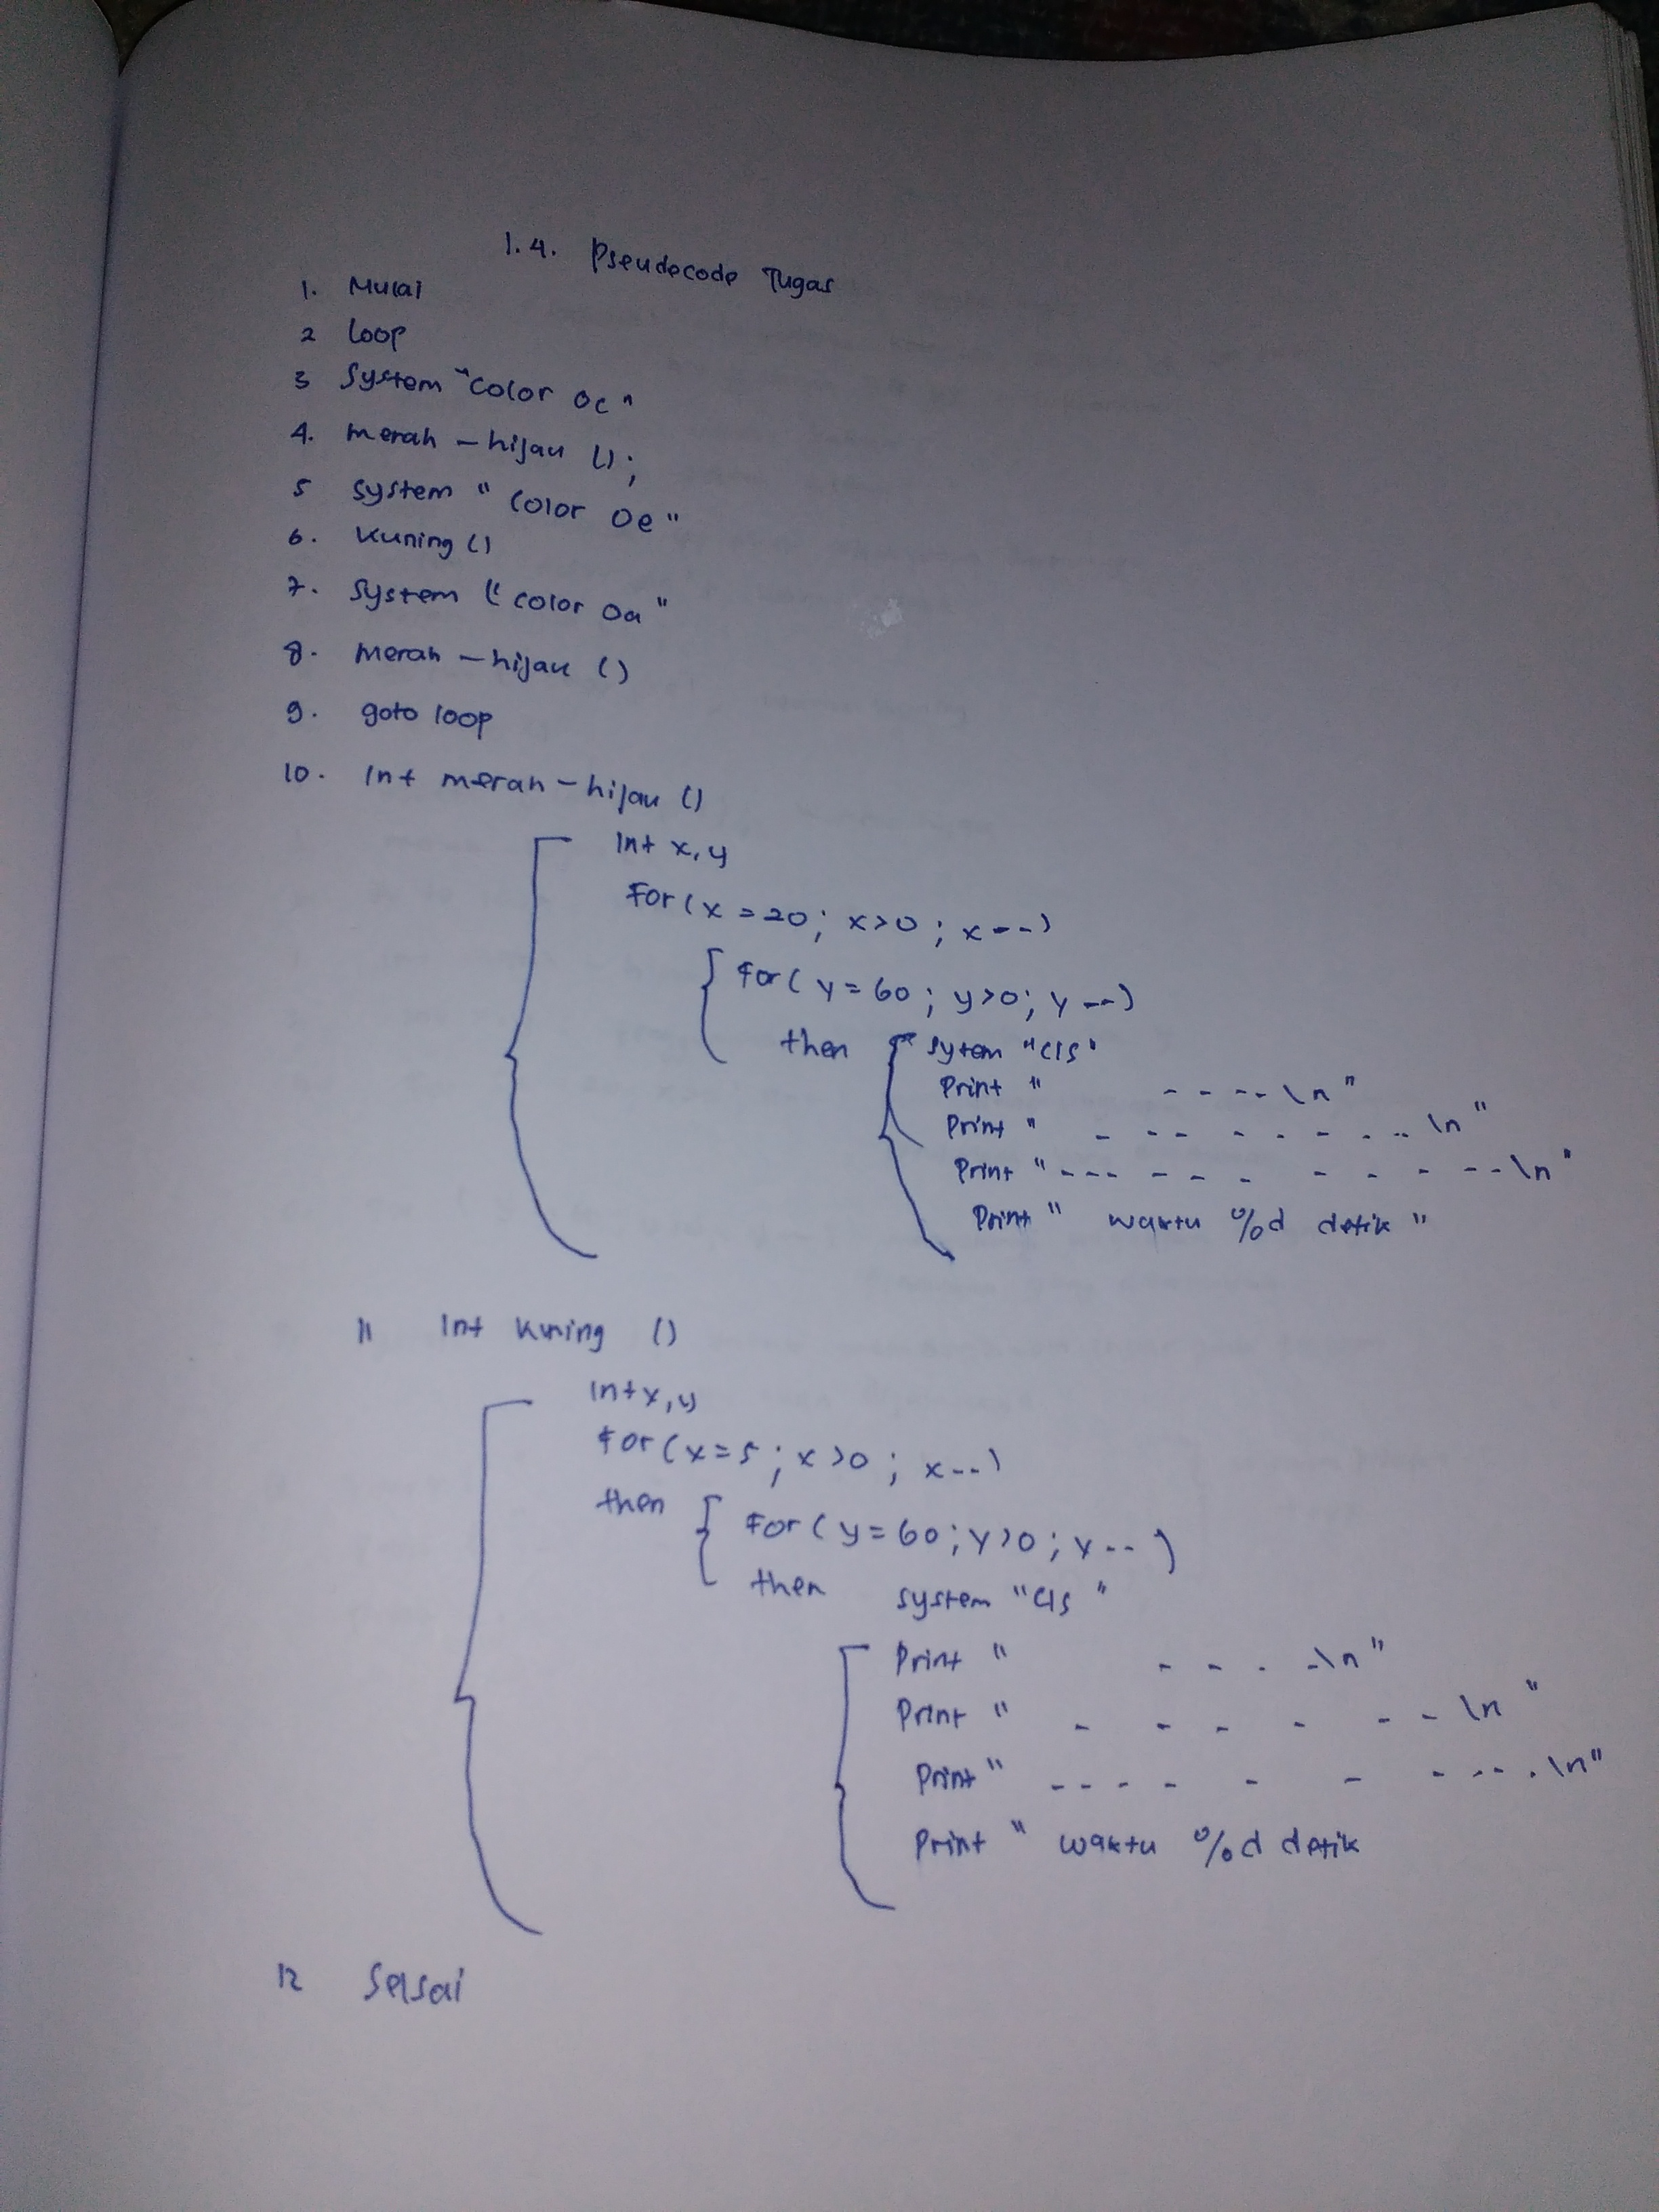 1.4. Pseudecode Tugas
1. Mulai
2 loop
3 System "color 0c"
4. merah - hijau ();
5 system " color 0e"
6. kuning ()
7. System " color 0a"
8. merah - hijau ()
9. goto loop
10. Int merah - hijau ()
Int x, y
For (x = 20; x>0; x--)
{ For ( y = 60; y>0; y --)
then { sytem "cls"
Print " - - - - \n"
Print " - - - - - - - - \n"
Print " - - - - - - - - - - - \n"
Print " waktu %d detik "
11 Int kuning ()
Int x, y
For (x = 5; x>0; x--)
then { For ( y = 60; y>0; y-- )
then system "cls"
Print " - - - - \n"
Print " - - - - - - \n"
Print " - - - - - - - - - - \n"
Print " waktu %d detik
12 Selsai